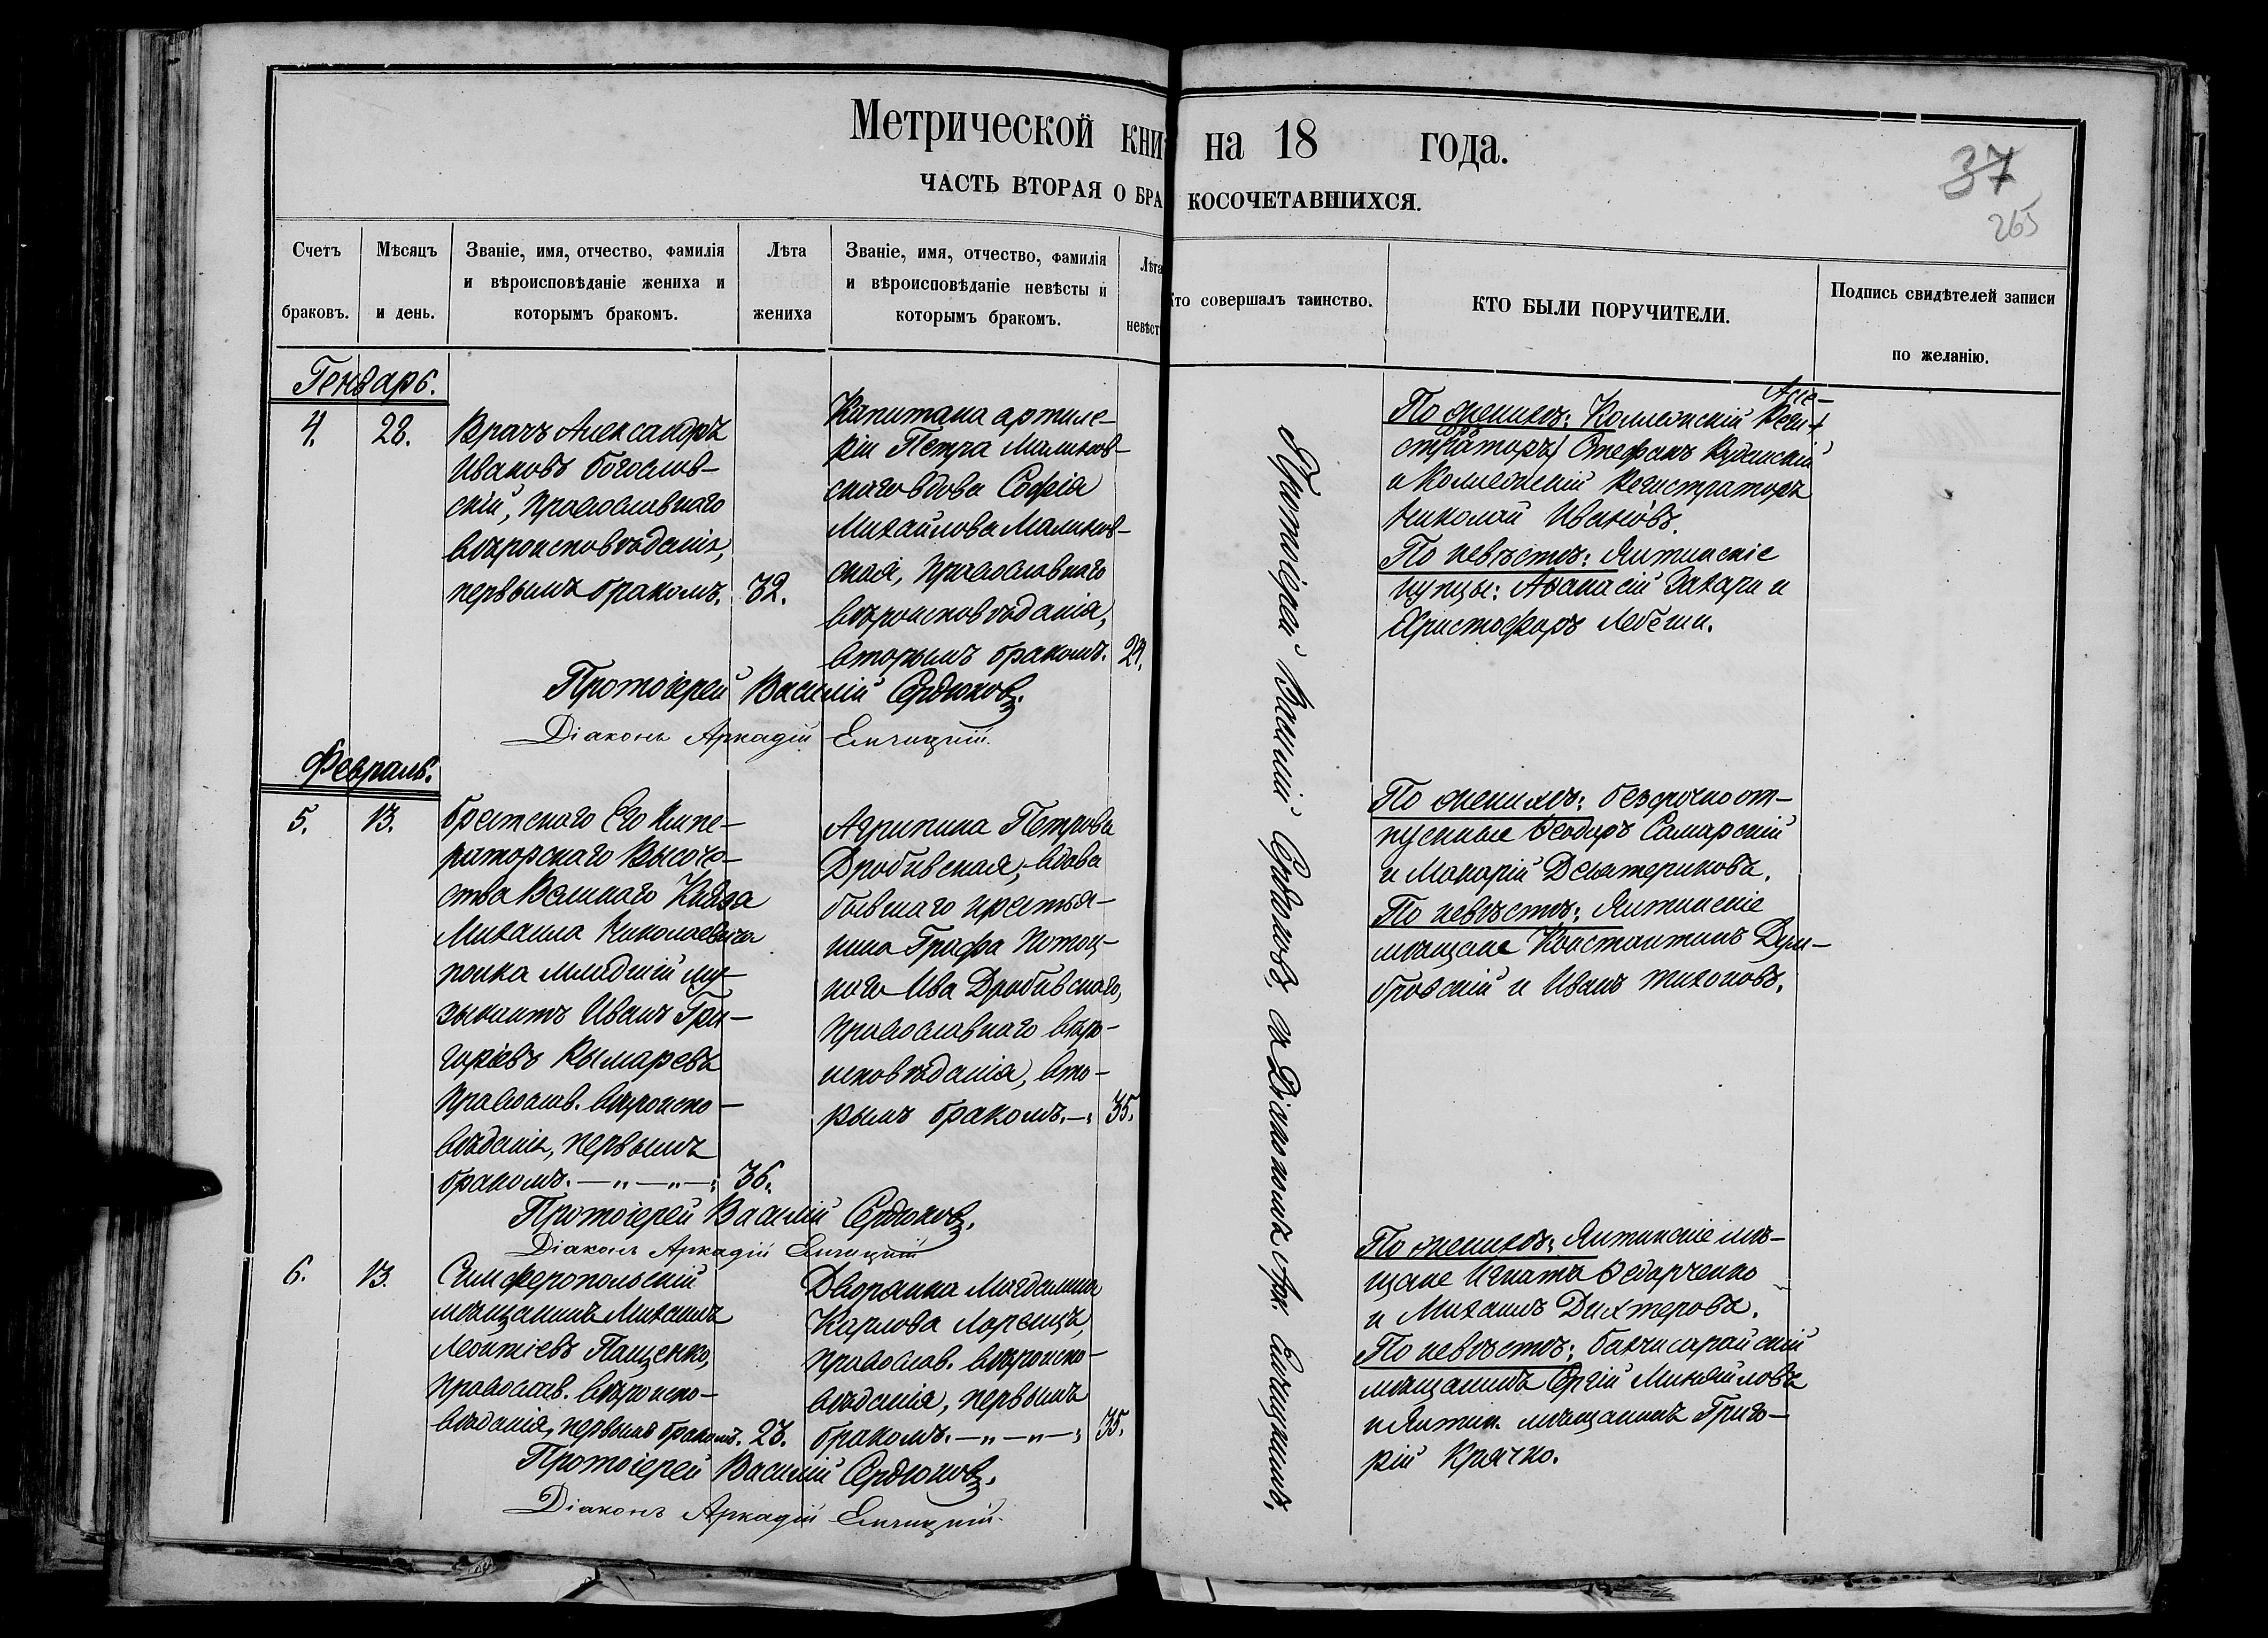 Метрической кни на 18 года.
ЧАСТЬ ВТОРАЯ О БРА КОСОЧЕТАВШИХСЯ.
37
265
Счетъ браковъ.
Мѣсяцъ и день.
Званіе, имя, отчество, фамилія
и вѣроисповѣданіе жениха и
которымъ бракомъ.
Лѣта жениха
Званіе, имя, отчество, фамилія
и вѣроисповѣданіе невѣсты и
которымъ бракомъ.
Лѣта невѣст
Кто совершалъ таинство.
КТО БЫЛИ ПОРУЧИТЕЛИ.
Подпись свидѣтелей записи
по желанію.
Генварь.
4. 28.
Врачъ Александръ
Ивановъ Богослов-
скій, православнаго
вѣроисповѣданія,
первымъ бракомъ. 32.
Капитана артиле-
ріи Петра Малинов-
скаго вдова Софія
Михайлова Малинов-
ская, православнаго
вѣроисповѣданія,
вторымъ бракомъ.
Протоіерей Василій Сердюковъ.
Діаконъ Аркадій
Протоіерей Василій Сердюковъ, съ Діакономъ Арк.
По женихѣ: Коллежскій
Стефанъ
и Коллежскій Регистраторъ
Николай Ивановъ.
По невѣстѣ: Ялтинскіе
купцы: Аѳанасій Захари и
Христофоръ
Февраль.
5. 13.
Брестскаго Его Импе-
раторскаго Высоче-
ства Великаго Князя
Михаила Николаевича
полка младшій му-
зыкантъ Иванъ Гри-
горіевъ Кымаревъ
православ. вѣроиспо-
вѣданія, первымъ
бракомъ. —"—"—: 36.
Агрипина Петрова
Дробивская, вдова
бывшаго крестья-
нина Графа Потоц-
каго Ива Дробивскаго,
православнаго вѣро-
исповѣданія, вто-
рымъ бракомъ. —: 35.
По женихѣ: безсрочноот-
пускные Ѳеодоръ Самарскій
и Макарій Декатериковъ.
По невѣстѣ: Ялтинскіе
мѣщане Константинъ Дум-
бровскій и Иванъ Тихоновъ.
Протоіерей Василій Сердюковъ.
Діаконъ Аркадій
6. 13.
Симферопольскій
мѣщанинъ Михаилъ
Леонтіевъ Пащенко,
православ. вѣроиспо-
вѣданія, первымъ бракомъ. 23.
Дворянка Магдалина
Карлова Лоренцъ,
православ. вѣроиспо-
вѣданія, первымъ
бракомъ. —"—"—: 35.
По женихѣ: Ялтинскіе мѣ-
щане Игнатъ Ѳедорченко
и Михаилъ Дихтеровъ.
По невѣстѣ: Бахчисарайскій
мѣщанинъ Сергій Михайловъ
и Ялтин. мѣщанинъ Григо-
рій Крячко.
Протоіерей Василій Сердюковъ.
Діаконъ Аркадій